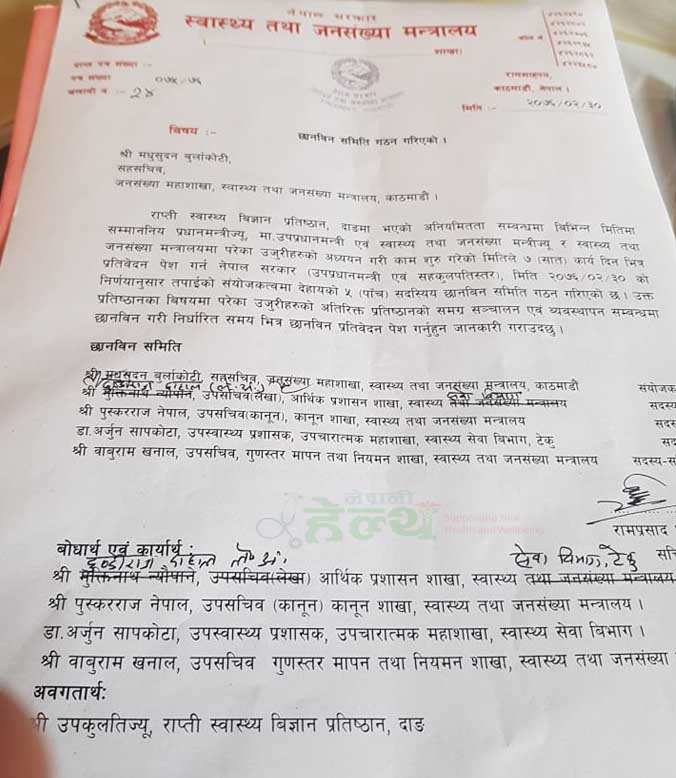 नेपाल सरकार
स्वास्थ्य तथा जनसंख्या मन्त्रालय
शाखा)
प्राप्त पत्र संख्या :-
पत्र संख्या ०७५/७६
चलानी नं. :- 24
रामशाहपथ,
काठमाडौं, नेपाल।
मिति :- २०७६/०२/३०
विषय :- छानविन समिति गठन गरिएको ।
श्री मधुसुदन बुर्लाकोटी,
सहसचिव,
जनसंख्या महाशाखा, स्वास्थ्य तथा जनसंख्या मन्त्रालय, काठमाडौं ।
राप्ती स्वास्थ्य विज्ञान प्रतिष्ठान, दाङमा भएको अनियमितता सम्बन्धमा विभिन्न मितिमा
सम्माननिय प्रधानमन्त्रीज्यू, मा.उपप्रधानमन्त्री एवं स्वास्थ्य तथा जनसंख्या मन्त्रीज्यू र स्वास्थ्य तथा
जनसंख्या मन्त्रालयमा परेका उजुरीहरुको अध्ययन गरी काम शुरु गरेको मितिले ७ (सात) कार्य दिन भित्र
प्रतिवेदन पेश गर्न नेपाल सरकार (उपप्रधानमन्त्री एवं सहकुलपतिस्तर), मिति २०७६/०२/३० को
निर्णयानुसार तपाईको संयोजकत्वमा देहायको ५ (पाँच) सदस्यिय छानविन समिति गठन गरिएको छ। उक्त
प्रतिष्ठानका बिषयमा परेका उजुरीहरुको अतिरिक्त प्रतिष्ठानको समग्र सञ्चालन एवं ब्यवस्थापन सम्बन्धमा
छानविन गरी निर्धारित समय भित्र छानविन प्रतिवेदन पेश गर्नुहुन जानकारी गराउदछु ।
छानविन समिति
श्री मधुसुदन बुर्लाकोटी, सहसचिव, जनसंख्या महाशाखा, स्वास्थ्य तथा जनसंख्या मन्त्रालय, काठमाडौं संयोजक
दाहाल (ले.अ.) सेवा विभाग
श्री मुक्तिनाथ न्यौपाने, उपसचिव(लेखा), आर्थिक प्रशासन शाखा, स्वास्थ्य तथा जनसंख्या मन्त्रालय सदस्य
श्री पुस्करराज नेपाल, उपसचिव(कानून), कानून शाखा, स्वास्थ्य तथा जनसंख्या मन्त्रालय सदस
डा.अर्जुन सापकोटा, उपस्वास्थ्य प्रशासक, उपचारात्मक महाशाखा, स्वास्थ्य सेवा बिभाग, टेकु सद
श्री वाबुराम खनाल, उपसचिव, गुणस्तर मापन तथा नियमन शाखा, स्वास्थ्य तथा जनसंख्या मन्त्रालय सदस्य-स
नेपाली
हेल्थ
Supporting Your
Health and Wellbeing
रामप्रसाद
सचि
बोधार्थ एवं कार्यार्थ :
दाहाल ले.अ. सेवा विभाग, टेकु
श्री मुक्तिनाथ न्यौपाने, उपसचिव(लेखा) आर्थिक प्रशासन शाखा, स्वास्थ्य तथा जनसंख्या मन्त्रालय
श्री पुस्करराज नेपाल, उपसचिव (कानून) कानून शाखा, स्वास्थ्य तथा जनसंख्या मन्त्रालय ।
डा.अर्जुन सापकोटा, उपस्वास्थ्य प्रशासक, उपचारात्मक महाशाखा, स्वास्थ्य सेवा बिभाग ।
श्री वाबुराम खनाल, उपसचिव गुणस्तर मापन तथा नियमन शाखा, स्वास्थ्य तथा जनसंख्या
अवगतार्थ:
श्री उपकुलतिज्यू, राप्ती स्वास्थ्य बिज्ञान प्रतिष्ठान, दाङ